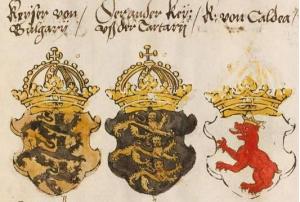 Keyser von
Bulgarij
Der ander Keyser
vß der Tartarij
K. von Caldea